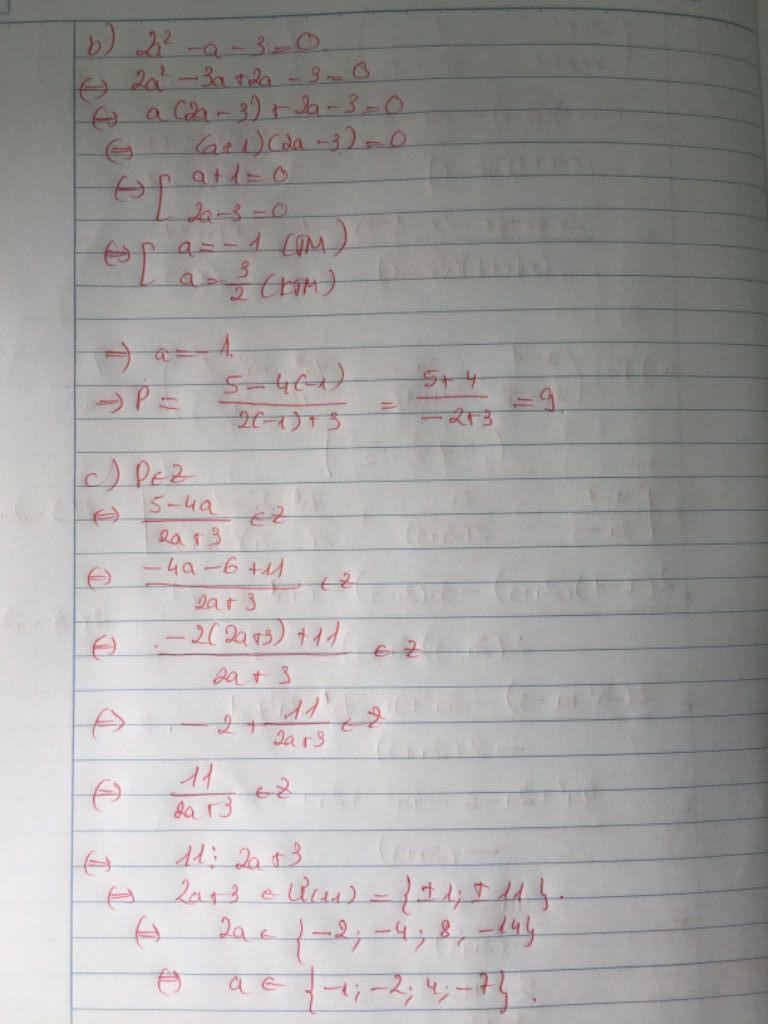 b) 2a² - a - 3 = 0
⇔ 2a² - 3a + 2a - 3 = 0
⇔ a(2a - 3) + 2a - 3 = 0
⇔ (a+1)(2a - 3) = 0
⇔ [ a+1 = 0
2a - 3 = 0
⇔ [ a = -1 (TM)
a = 3/2 (KTM)
⇒ a = -1.
⇒ P = (5 - 4(-1))/(2(-1)+3) = (5+4)/(-2+3) = 9
c) P ∈ Z
⇔ (5 - 4a)/(2a+3) ∈ Z
⇔ (-4a - 6 + 11)/(2a+3) ∈ Z
⇔ (-2(2a+3) + 11)/(2a+3) ∈ Z
⇔ -2 + 11/(2a+3) ∈ Z
⇔ 11/(2a+3) ∈ Z
⇔ 11 ⋮ 2a+3
⇔ 2a+3 ∈ Ư(11) = {±1; ±11}.
⇔ 2a ∈ {-2; -4; 8; -14}
⇔ a ∈ {-1; -2; 4; -7}.